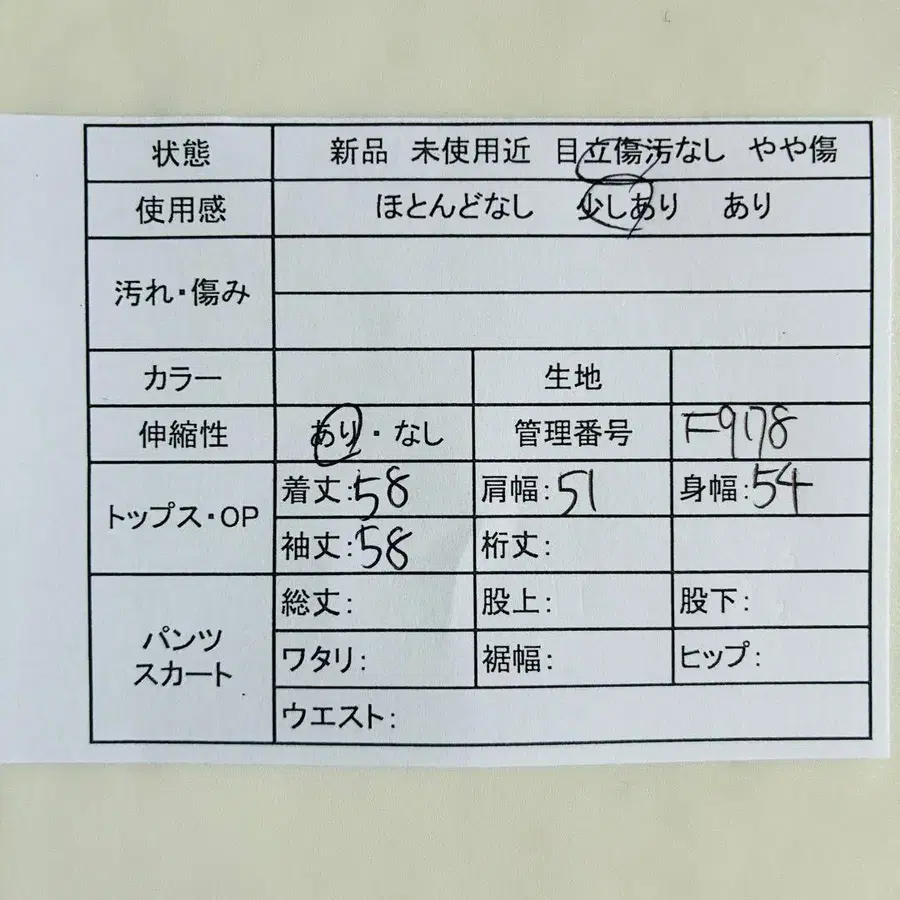 状態 新品 未使用近 目立傷汚なし やや傷
使用感 ほとんどなし 少しあり あり
汚れ・傷み
カラー 生地
伸縮性 あり・なし 管理番号 F9178
トップス・OP 着丈:58 肩幅:51 身幅:54
袖丈:58 裄丈:
パンツ
スカート
総丈: 股上: 股下:
ワタリ: 裾幅: ヒップ:
ウエスト: